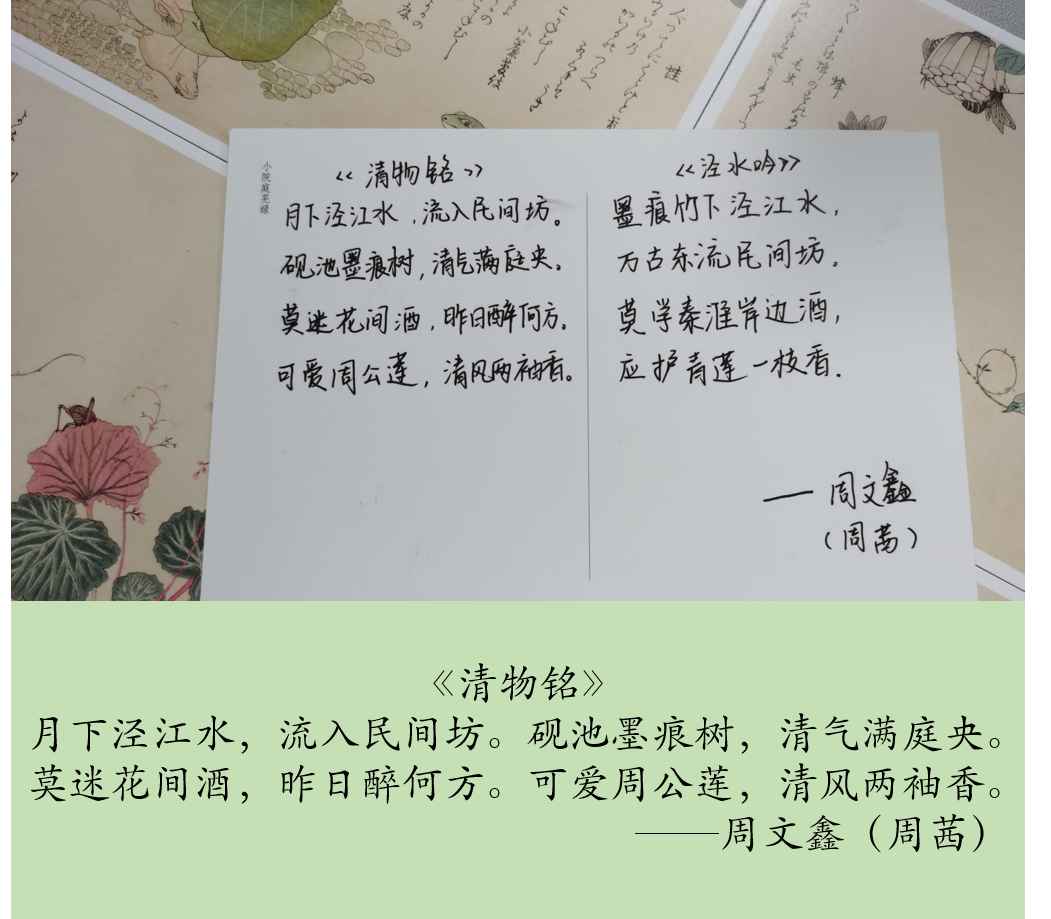 小院庭芜绿
《清物铭》
月下泾江水,流入民间坊。
砚池墨痕树,清气满庭央。
莫迷花间酒,昨日醉何方。
可爱周公莲,清风两袖香。
《泾水吟》
墨痕竹下泾江水,
万古东流民间坊.
莫学秦淮岸边酒,
应护青莲一枝香.
——周文鑫
(周茜)
《清物铭》
月下泾江水，流入民间坊。砚池墨痕树，清气满庭央。
莫迷花间酒，昨日醉何方。可爱周公莲，清风两袖香。
——周文鑫（周茜）